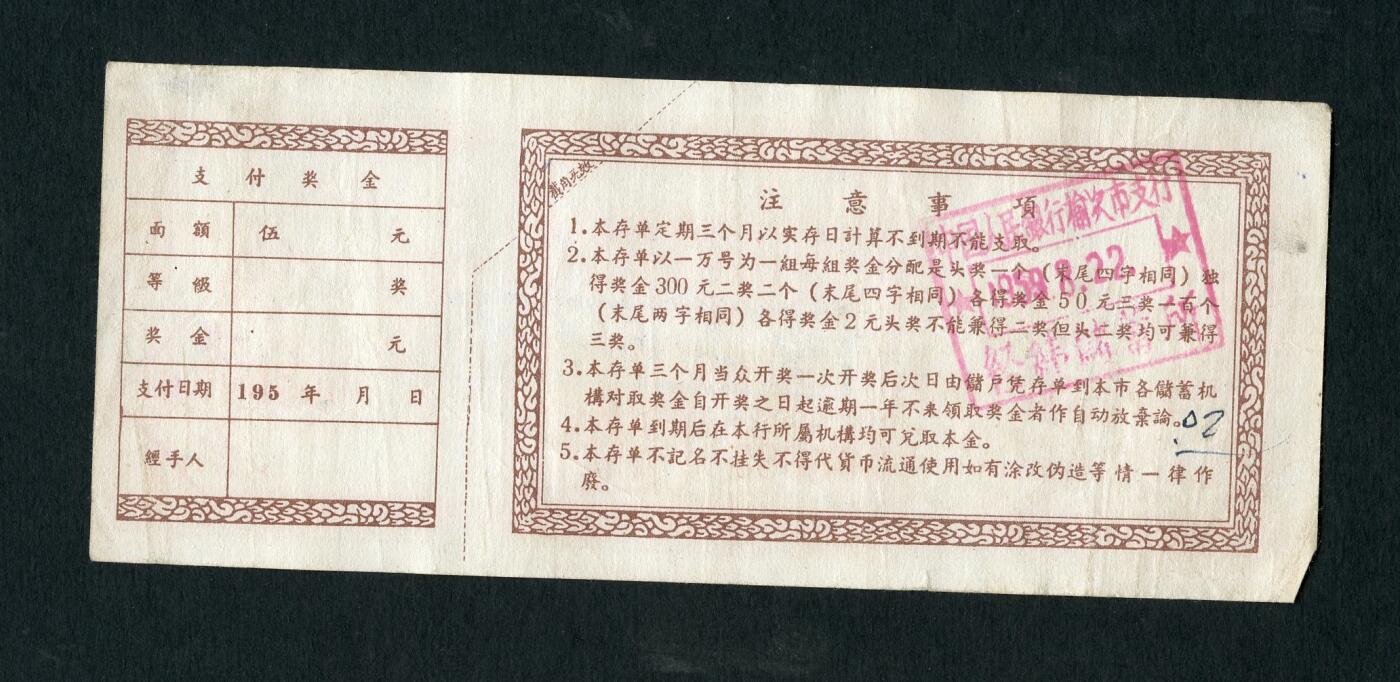 支付奖金
面額 伍 元
等級 奖
奖金 元
支付日期 195 年 月 日
經手人
注意事項
1.本存单定期三个月以实存日計算不到期不能支取。
2.本存单以一万号为一組每組奖金分配是头奖一个(末尾四字相同)独
得奖金300元二奖二个(末尾四字相同)各得奖金50元三奖一百个
(末尾两字相同)各得奖金2元头奖不能兼得二奖但头二奖均可兼得
三奖。
3.本存单三个月当众开奖一次开奖后次日由儲戶凭存单到本市各儲蓄机
構対取奖金自开奖之日起逾期一年不来領取奖金者作自动放棄論。
4.本存单到期后在本行所屬机構均可兌取本金。
5.本存单不記名不挂失不得代貨币流通使用如有涂改伪造等情一律作
廢。
中国人民銀行榆次市支行
1958.8.22
02